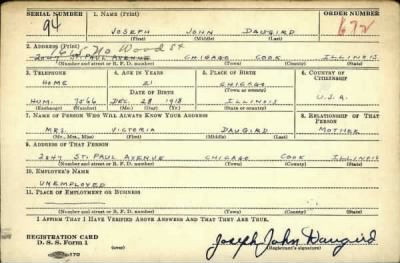 SERIAL NUMBER 1. NAME (Print) ORDER NUMBER
94 JOSEPH JOHN DAUGIRD 672
(First) (Middle) (Last)
2. ADDRESS (Print)
1641 No Wood St
2047 ST. PAUL AVENUE CHICAGO COOK ILLINOIS
(Number and street or R. F. D. number) (Town) (County) (State)
3. TELEPHONE 4. AGE IN YEARS 5. PLACE OF BIRTH 6. COUNTRY OF CITIZENSHIP
HOME 21 CHICAGO
DATE OF BIRTH (Town or county)
HUM. 7566 DEC. 28 1918 ILLINOIS U.S.A.
(Exchange) (Number) (Mo.) (Day) (Yr.) (State or country)
7. NAME OF PERSON WHO WILL ALWAYS KNOW YOUR ADDRESS 8. RELATIONSHIP OF THAT PERSON
MRS. VICTORIA DAUGIRD MOTHER
(Mr., Mrs., Miss) (First) (Middle) (Last)
9. ADDRESS OF THAT PERSON
2047 ST. PAUL AVENUE CHICAGO COOK ILLINOIS
(Number and street or R. F. D. number) (Town) (County) (State)
10. EMPLOYER'S NAME
UNEMPLOYED
11. PLACE OF EMPLOYMENT OR BUSINESS
(Number and street or R. F. D. number) (Town) (County) (State)
I AFFIRM THAT I HAVE VERIFIED ABOVE ANSWERS AND THAT THEY ARE TRUE.
REGISTRATION CARD
D. S. S. Form 1 (over) Joseph John Daugird
(Registrant's signature)